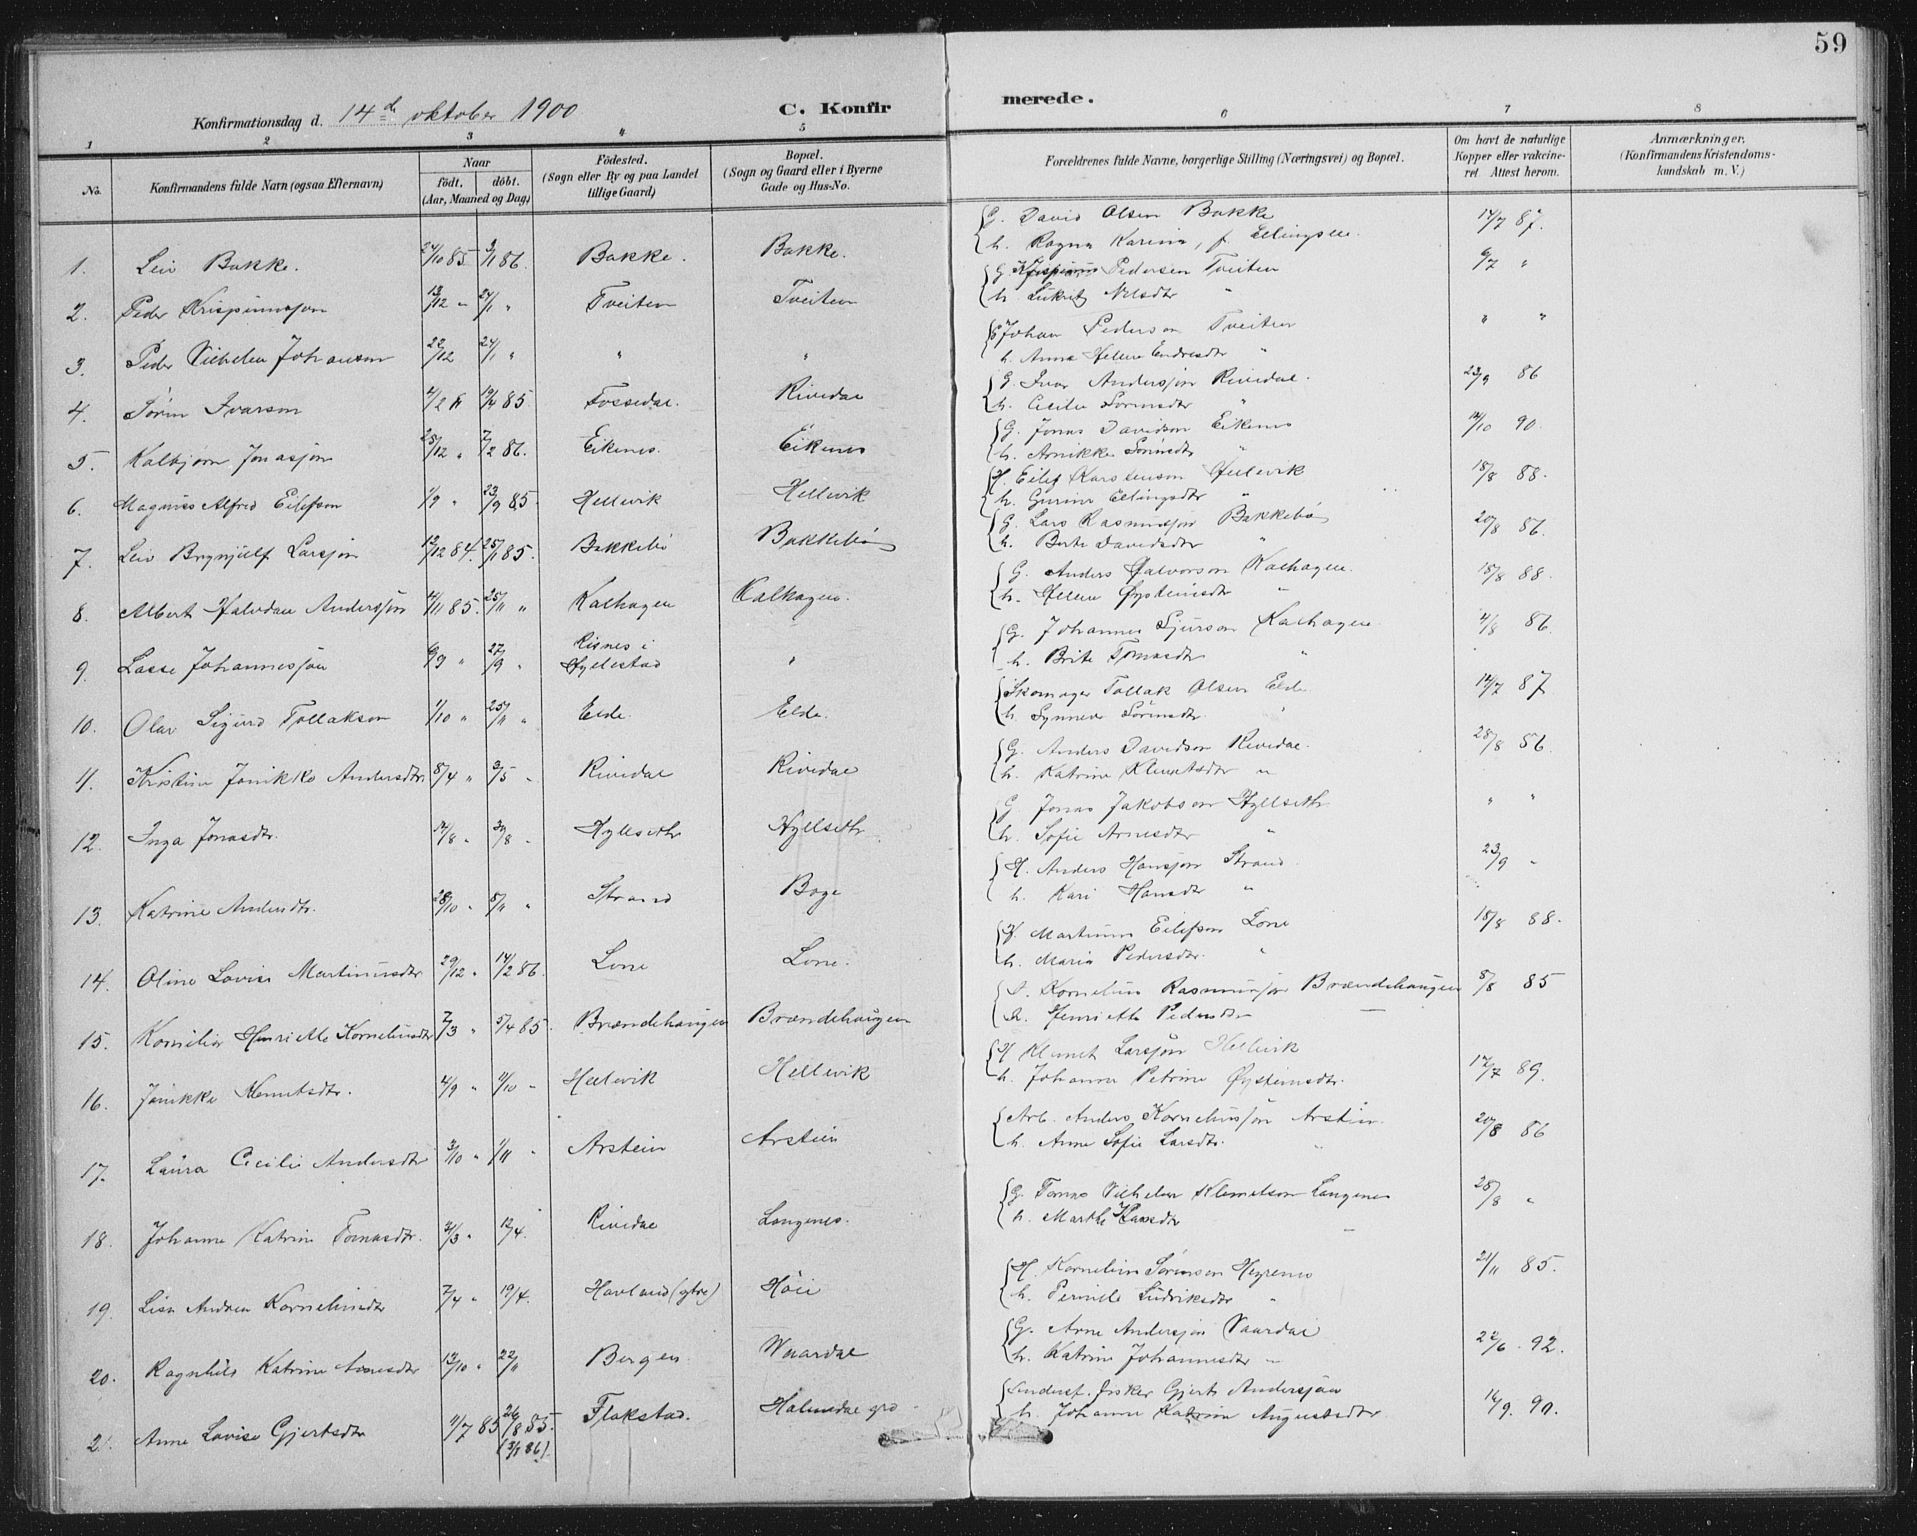 59
Konfirmationsdag d. 14de oktober 1900 C. Konfirmerede.
1 2 3 4 5 6 7 8
No. Konfirmandens fulde Navn (ogsaa Efternavn) Naar födt. döbt. (Aar, Maaned og Dag) Födested. (Sogn eller By og paa Landet tillige Gaard) Bopæl. (Sogn og Gaard eller i Byerne Gade og Hus-No. Forældrenes fulde Navne, borgerlige Stilling (Næringsvei) og Bopæl. Om havt de naturlige Kopper eller vakcineret. Attest herom. Anmærkninger, (Konfirmandens Kristendomskundskab m. V.)
1. Leiv Bakke. 24/10 85 86. Bakke. Bakke. G. David Olsen Bakke 14/7 87.
h. Ragna Karina, f. Ellingsen
2. Peder Krispinussøn 13/12 " 24/1 " Tveiten Tveiten G. Krispinus Pedersen Tveiten 9/7 "
h. Lukrets Nilsdtr "
3. Peder Vilhelm Johanson 22/12 24/1 " " " G. Johan Pederson Tveiten " "
h. Anna Helene Endresdtr "
4. Søren Ivarson 4/2 19/4 85. Fossedal. Rivedal G. Ivar Andersøn Rivedal. 23/9 86
h. Cecilie Sørensdtr "
5. Kolbjørn Jonassøn 25/12 " 7/2 86. Eikenes. Eikenes G. Jonas Davidson Eikenes 14/10 90.
h. Annikke Sørensdtr "
6. Magnus Alfred Eilefson 1/9 " 23/9 85. Hellevik Hellevik H. Eilef Karstenson Hellevik 18/8 88.
h. Gurine Ellingsdtr "
7. Leiv Brynjulf Larsjøn 12/12 84. 25/1 85. Bakkebø Bakkebø G. Lars Rasmussøn Bakkebø 20/8 86.
h. Berte Davidsdtr "
8. Albert Halvdan Anderssøn 4/11 85. 25/11 " Kalhagen Kalhagen. G. Anders Halvorson Kalhagen. 18/8 88.
h. Helene Øysteinsdtr "
9. Lasse Johannessøn 6/9 " 27/9 " Risnes i Hyllestad " G. Johannes Sjurson Kalhagen 4/8 86.
h. Brite Tomasdtr "
10. Olav Sigurd Tollakson 1/10 " 25/11 " Elde. Elde. Skomager Tollak Olsen Elde 14/7 87
h. Synneve Sørensdtr. "
11. Kristine Jønikke Andersdtr. 8/4 " 3/5 " Rivedal Rivedal G. Anders Davidson Rivedal. 28/8 56.
h. Katrine Klemetsdtr "
12. Inga Jonasdtr. 14/8 " 30/8 " Hyllseth Hyllseth G. Jonas Jakobson Hyllseth " "
h. Sofie Arnesdtr "
13. Katrine Andersdtr. 28/10 " 8/11 " Strand Boge H. Anders Hansøn Strand. 23/9 "
h. Kari Hansdtr "
14. Oline Lovise Martinusdtr 29/12 " 14/2 86. Lone Lone. H. Martinus Eilefson Lone 18/8 88.
h. Maria Pedersdtr. "
15. Kornelia Henriette Korneliusdtr 2/3 " 5/4 85. Brændehaugen Brændehaugen Kornelius Rasmussøn Brændehaugen 8/8 85
h. Henriette Pedersdtr —
16. Jønikke Klemetsdtr. 4/9 " 11/10 " Hellevik Hellevik H Klemet Larsjøn Hellevik 17/7 89.
h. Johanne Petrine Øysteinsdtr.
17. Laura Cecilie Andersdtr 3/10 " 1/11 " Arstein Arstein Arb. Anders Korneliussøn Arstein. 20/8 86
h. Anne Sofie Larsdtr. "
18. Johanne Katrine Tomasdtr. 2/3 " 12/4. Rivedal Langenes. G. Tomas Vilhelm Klemetson Langenes 28/8 "
h. Marthe Hansdtr —
19. Lisa Andrea Korneliusdtr 7/4 " 19/4. Havland (ytre) Høie H. Kornelius Sørenson Høyenes 21/11 85.
h. Pernille Ludviksdtr "
20. Ragnhild Katrine Arnesdtr 13/10 " 22/11 Bergen Waardal G. Arne Andersjøn Vaardal 22/6 92.
h. Katrine Johannesdtr "
21. Anne Lovise Gjertsdtr 11/7 85 26/8 85. (3/1 86). Flokstad. Holmedal Gjert Andersjøn 14/9. 90.
h. Johanne Katrine Augustsdtr